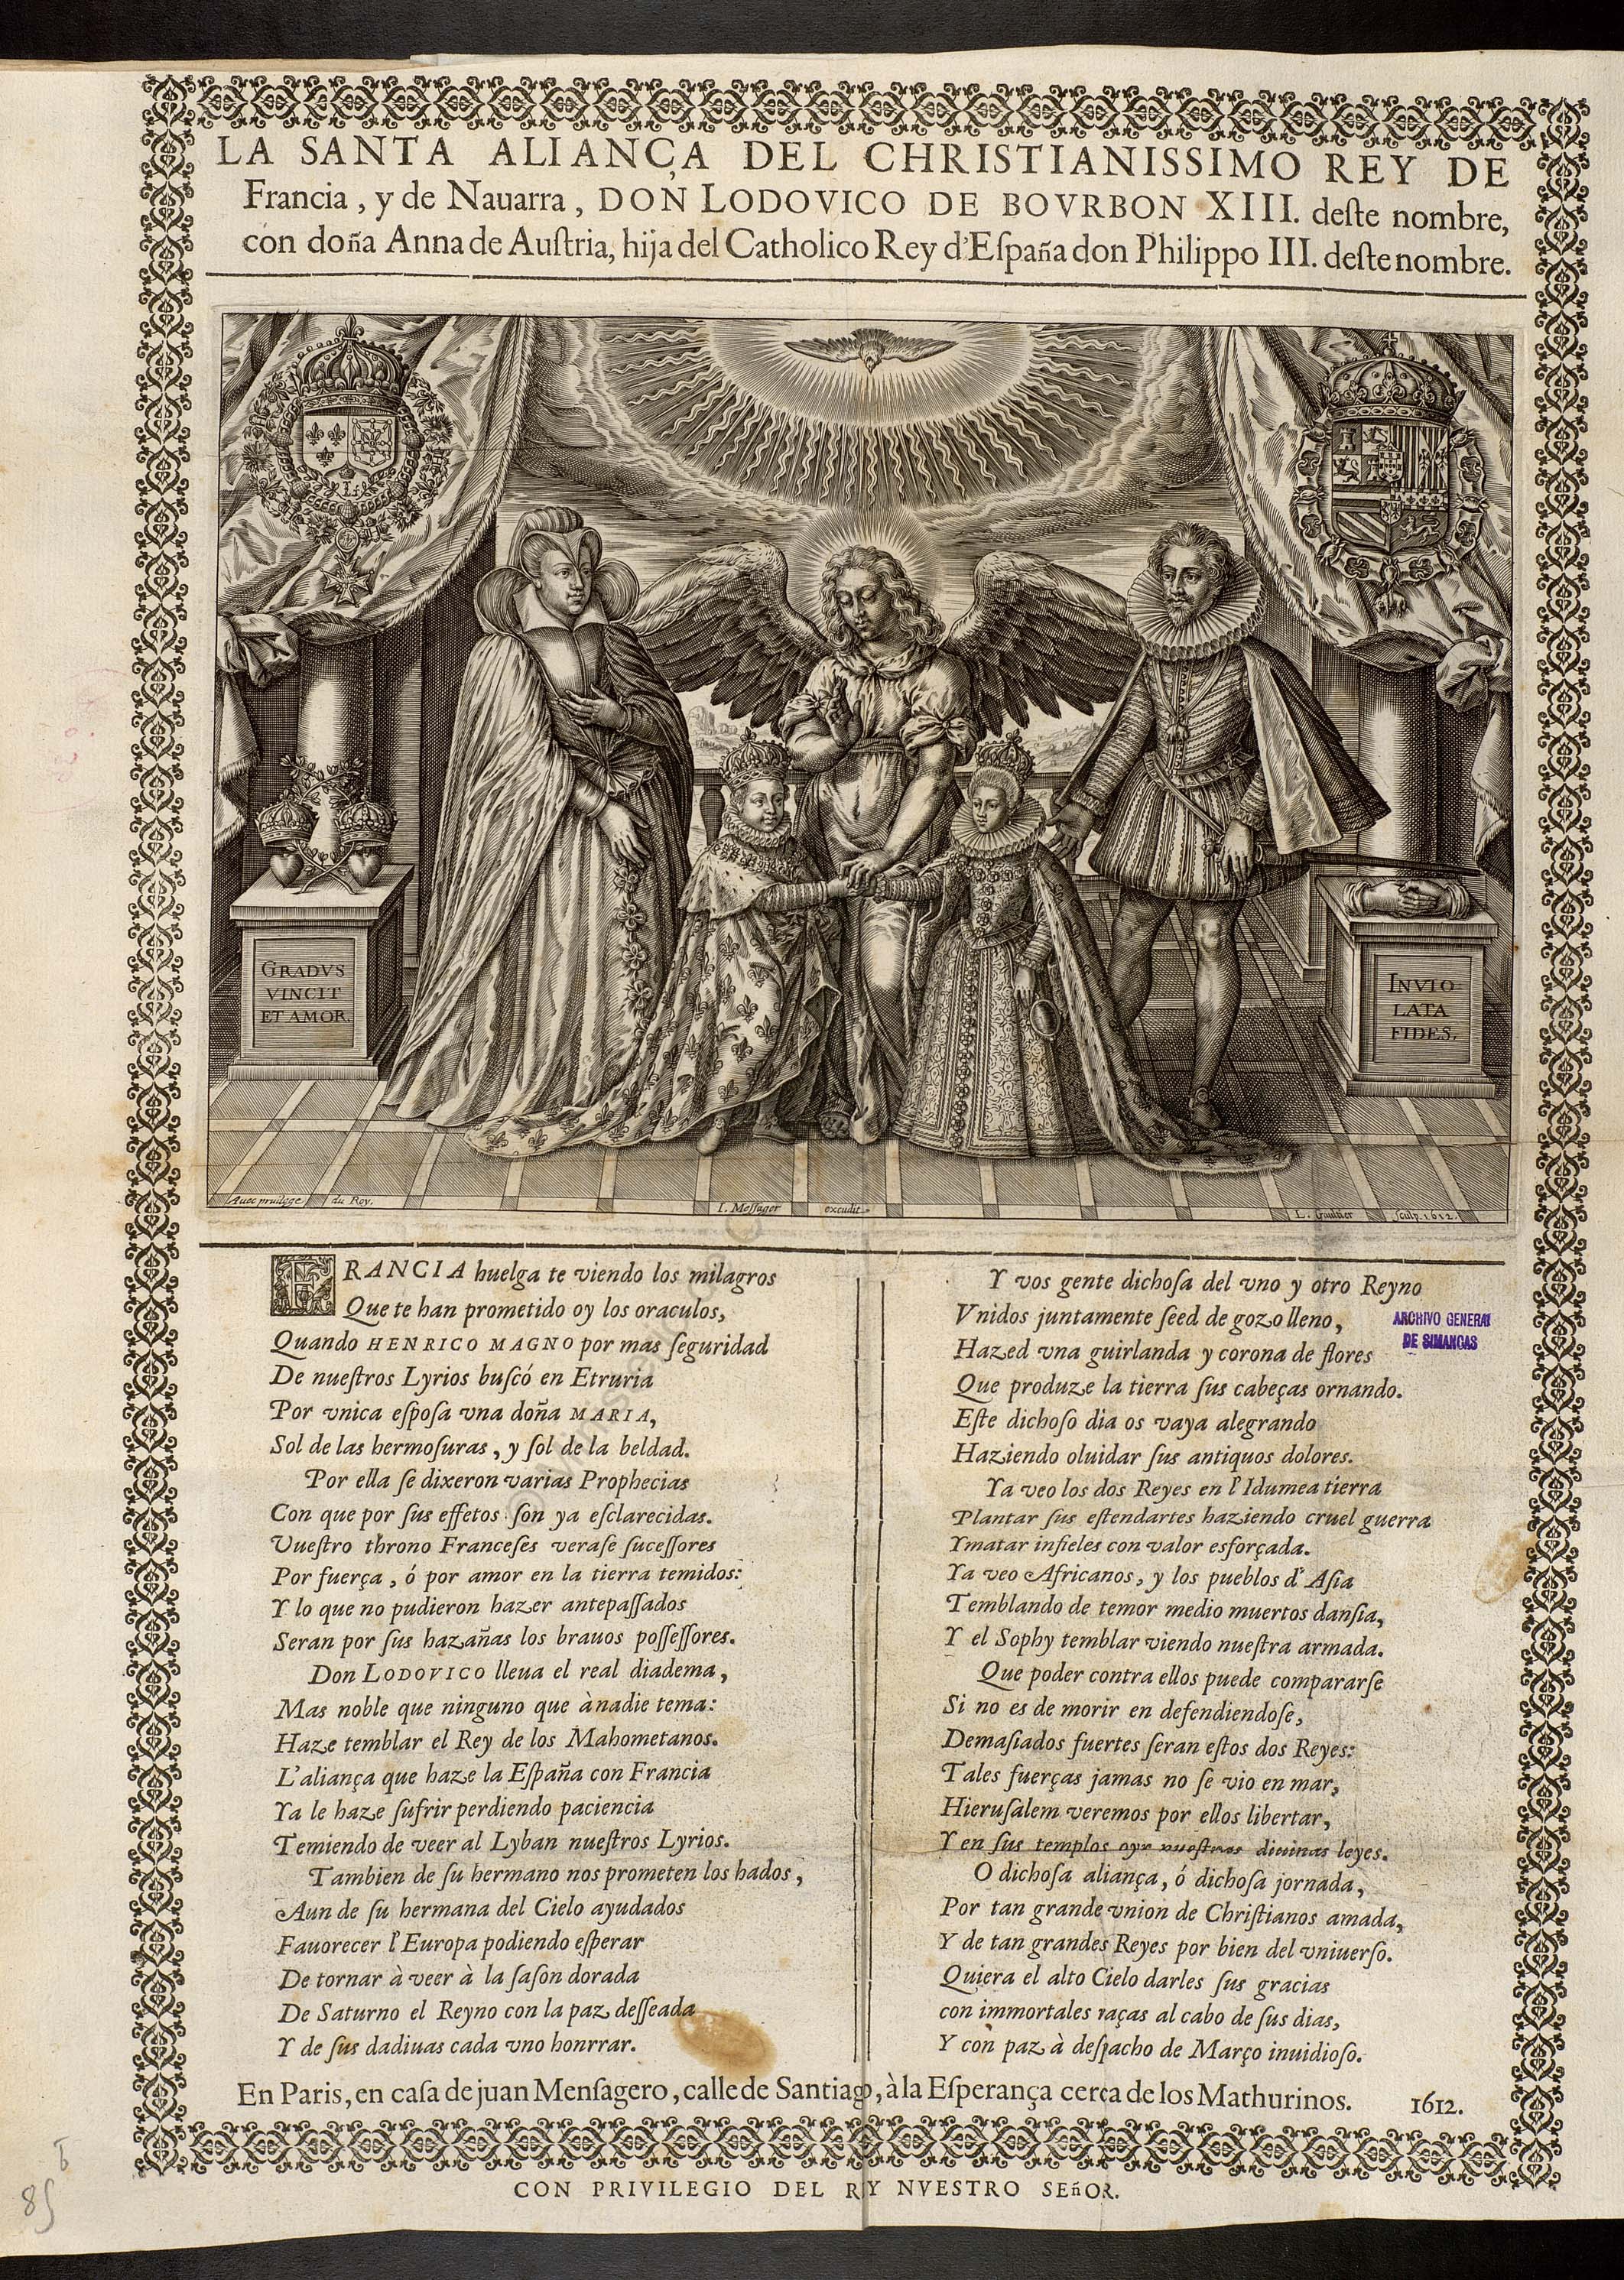 LA SANTA ALIANÇA DEL CHRISTIANISSIMO REY DE
Francia, y de Nauarra, DON LODOVICO DE BOVRBON XIII. deſte nombre,
con doña Anna de Auſtria, hija del Catholico Rey d'Eſpaña don Philippo III. deſte nombre.
L
GRADVS
VINCIT
ET AMOR.
INVIO-
LATA
FIDES.
Auec priuilege du Rey.
I. Meſſager excudit.
L. Gaultier ſculp. 1612.
FRANCIA huelga te viendo los milagros
Que te han prometido oy los oraculos,
Quando HENRICO MAGNO por mas ſeguridad
De nueſtros Lyrios buſcó en Etruria
Por vnica eſpoſa vna doña MARIA,
Sol de las hermoſuras, y ſol de la beldad.
Por ella ſe dixeron varias Prophecias
Con que por ſus effetos ſon ya eſclarecidas.
Vueſtro throno Franceſes veraſe ſuceſſores
Por fuerça, ó por amor en la tierra temidos:
Y lo que no pudieron hazer antepaſſados
Seran por ſus hazañas los brauos poſſeſſores.
Don LODOVICO lleua el real diadema,
Mas noble que ninguno que à nadie tema:
Haze temblar el Rey de los Mahometanos.
L'aliança que haze la Eſpaña con Francia
Ya le haze ſufrir perdiendo paciencia
Temiendo de veer al Lyban nueſtros Lyrios.
Tambien de ſu hermano nos prometen los hados,
Aun de ſu hermana del Cielo ayudados
Fauorecer l'Europa podiendo eſperar
De tornar à veer à la ſaſon dorada
De Saturno el Reyno con la paz deſſeada
Y de ſus dadiuas cada vno honrrar.
Y vos gente dichoſa del vno y otro Reyno
Vnidos juntamente ſeed de gozo lleno,
Hazed vna guirlanda y corona de flores
Que produze la tierra ſus cabeças ornando.
Eſte dichoſo dia os vaya alegrando
Haziendo oluidar ſus antiquos dolores.
Ya veo los dos Reyes en l'Idumea tierra
Plantar ſus eſtendartes haziendo cruel guerra
Y matar infieles con valor esforçada.
Ya veo Africanos, y los pueblos d'Aſia
Temblando de temor medio muertos danſia,
Y el Sophy temblar viendo nueſtra armada.
Que poder contra ellos puede compararſe
Si no es de morir en defendiendoſe,
Demaſiados fuertes ſeran eſtos dos Reyes:
Tales fuerças jamas no ſe vio en mar,
Hieruſalem veremos por ellos libertar,
Y en ſus templos oyr nueſtras diuinas leyes.
O dichoſa aliança, ó dichoſa jornada,
Por tan grande vnion de Chriſtianos amada,
Y de tan grandes Reyes por bien del vniuerſo.
Quiera el alto Cielo darles ſus gracias
con immortales raças al cabo de ſus dias,
Y con paz à deſpacho de Março inuidioſo.
ARCHIVO GENERAL
DE SIMANCAS
En Paris, en caſa de juan Menſagero, calle de Santiago, à la Eſperança cerca de los Mathurinos. 1612.
CON PRIVILEGIO DEL RY NVESTRO SEñOR.
85